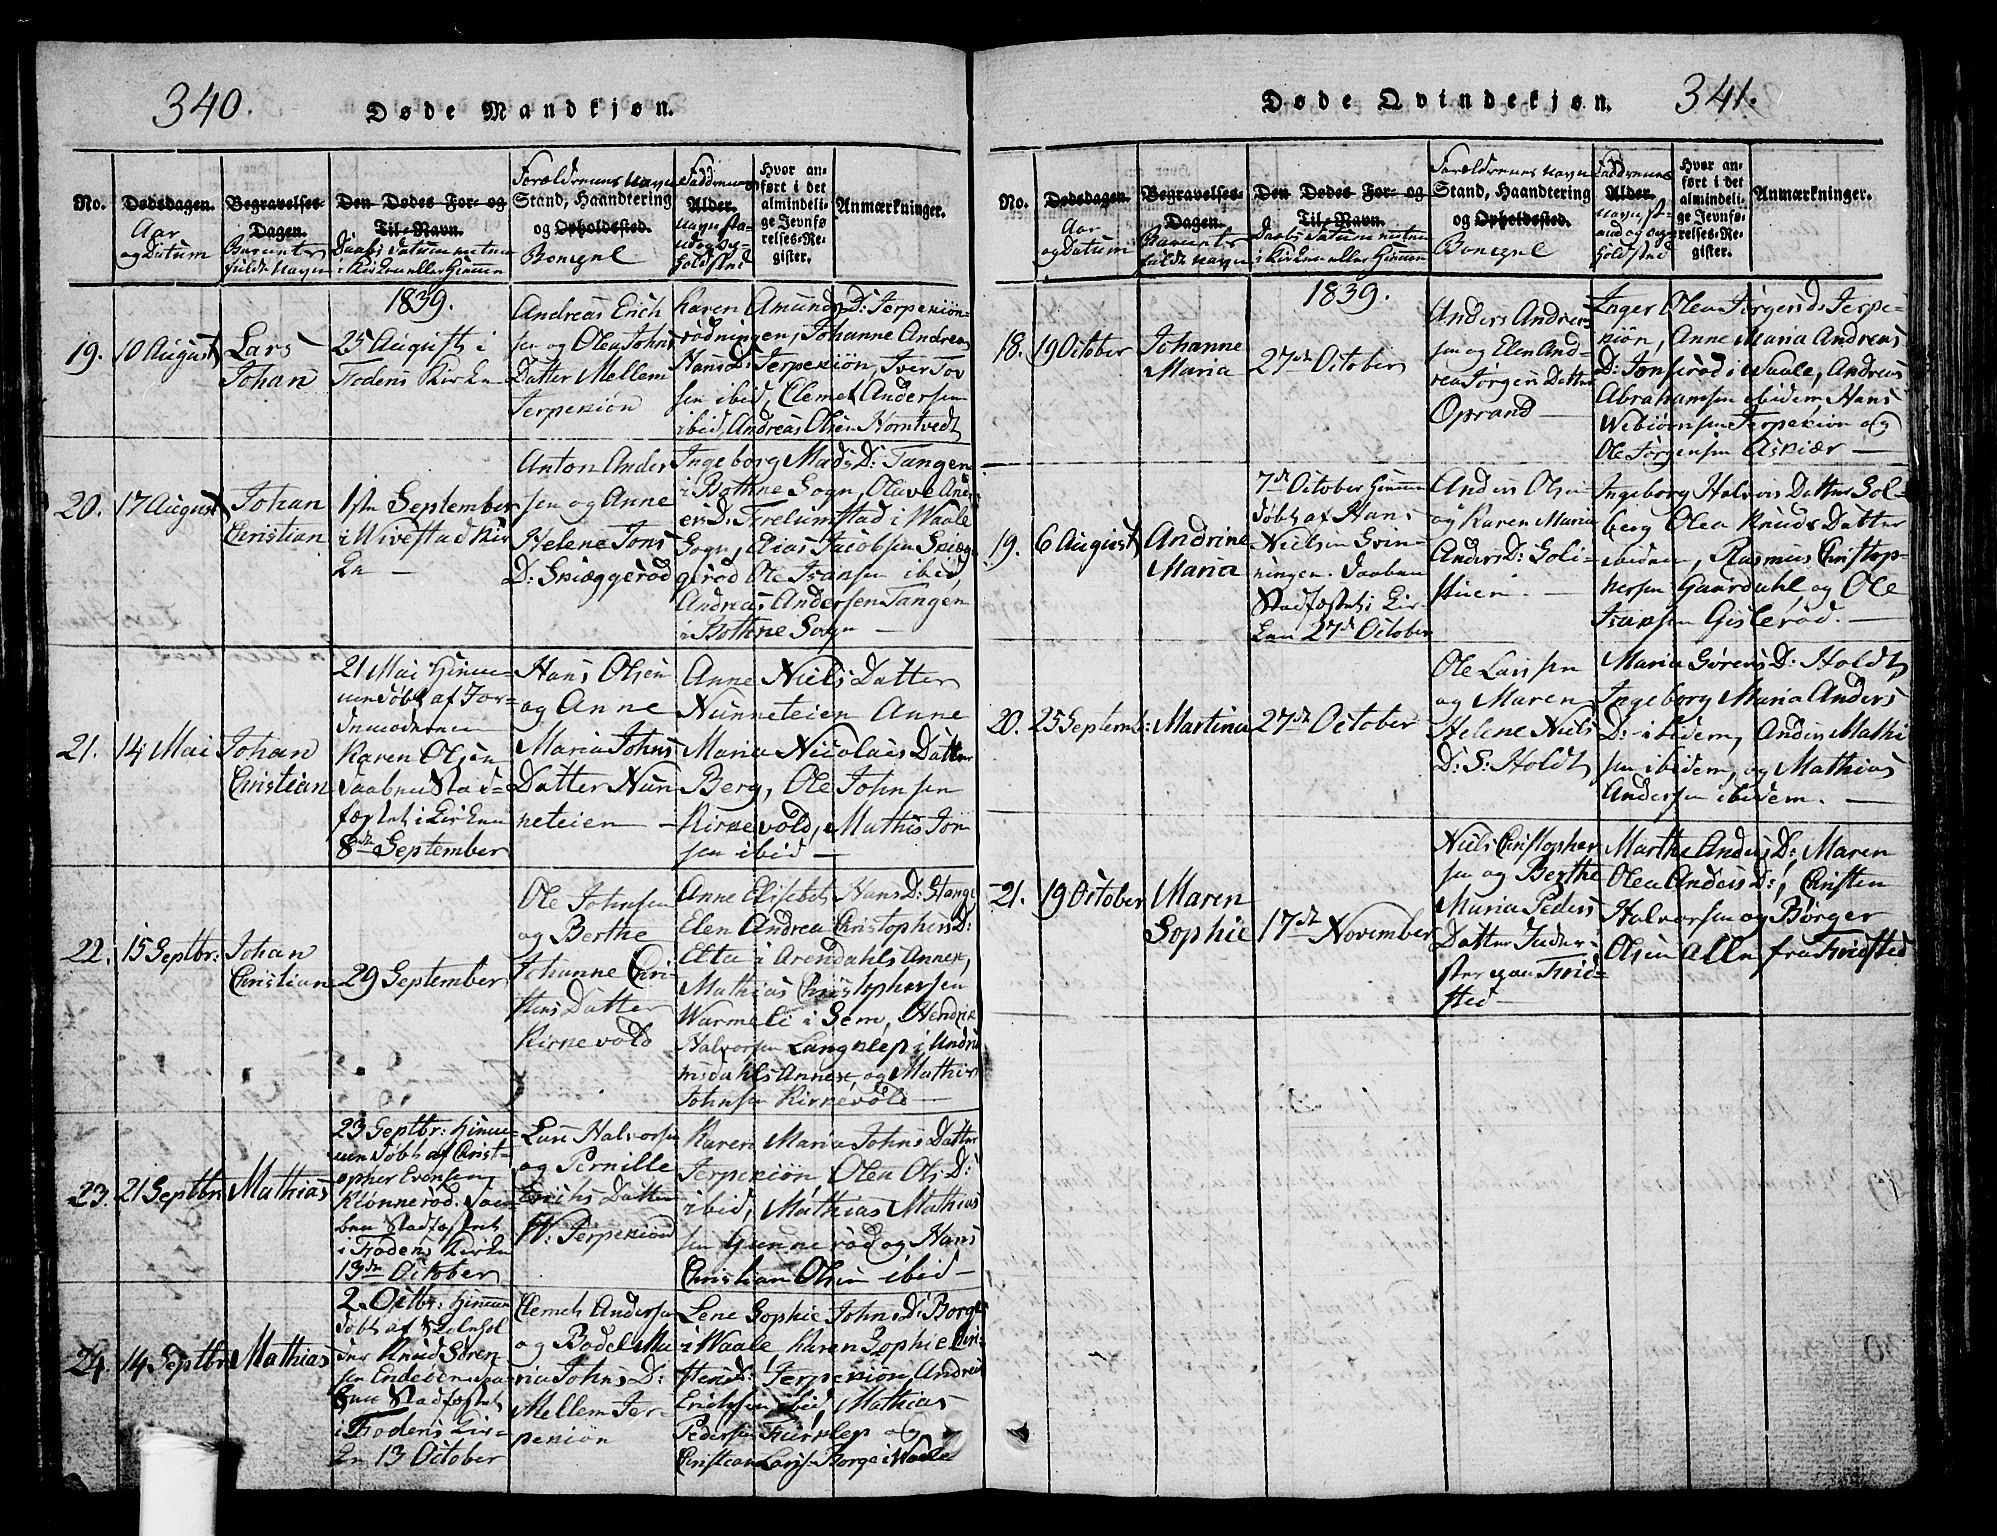 340.
Døde Mandkjøn.
No.
Dødsdagen.
Aar
og Datum
Begravelses-
Dagen.
Barnets
fulde Navn
Den Dødes For- og
Til-Navn.
Daabs Datum enten
i Kirken eller Hiemme
Forældrenes Navn
Stand, Haandtering
og Opholdssted.
Boeigne
Faddernes
Alder.
Navn sta-
nd og Op-
holdsted
Hvor an-
ført i det
almindeli-
ge Jevnfø-
relses-Re-
gister.
Anmærkninger.
1839.
19.
10 August
Lars
Johan
25 August i
Fodens Kirke
Andreas Erich
sen og Olea Johns
Datter Mellem
Terpekiøn
Karen Amunds D: Terpekiøn-
rødningen, Johanne Andrea
Hans D: Terpekiøn, Iver Tov
sen ibid, Clemet Andersen
ibid, Andreas Olsen Horntvedt
20.
17 August
Johan
Christian
1ste September
i Wivestad Kir
ke —
Anton Ander
sen og Anne
Helene Jons
D: Skiæggerød
Ingeborg Mads D: Tangen
i Bothne Sogn, Olave And
ers D: Trelumstad i Waale
Sogn, Elias Jacobsen Skiæg
gerød Ole Fransen ibid,
Andreas Andersen Tangen
i Bothne Sogn —
21.
14 Mai
Johan
Christian
21 Mai hiem-
medøbt af Jor-
demoderen
Karen Olsen
Daaben Stad-
fæstet i Kirken
8de September
Hans Olsen
og Anne
Maria Johns
Datter Nun
neteien —
Anne Niels Datter
Nunneteien Anne
Maria Nicolais Datter
Berg, Ole Johnsen
Kirkevold, Mathis Jon
sen ibid —
22.
15 Septbr:
Johan
Christian
29 September
Ole Johnsen
og Berthe
Johanne Chri-
stens Datter
Kirkevold
Anne Elisebet Hans D: Stange
Elen Andrea Christophers D:
Elta i Arendahls Annex,
Mathias Christophersen
Warmeli i Sem, Hendrik
Halvorsen Langklep i Andri
msdahls Annex, og Mathis
Johnsen Kirkevold —
23.
21 Septbr:
Mathias
23 Septbr: hiem-
me døbt af Christ-
opher Evensen
Klønnerød. Daa-
ben Stadfæstet
i Fodens Kirke
13de October
Lars Halvorsen
og Pernille
Erichs Datter
N: Terpekiøn
Karen Maria Johns Datter
Terpekiøn, Olea Ols D:
ibid, Mathias Mathias
sen Gunnerød og Hans
Christian Olsen ibid —
24.
14 Septbr:
Mathias
2 Octbr: hiemme
døbt af Skolehol
der Knud Søren
sen Endesen Daa-
ben Stadfæstet
i Fodens Kir-
ke 13 October
Clemet Andersen
og Bodel Ma
ria Johns D:
Mellem Ter-
pekiøn
Lene Sophie Johns D: Borge
i Waale, Karen Sophie Chri-
stens D: Terpekiøn, Andreas
Erichsen ibid, Mathias
Pedersen Fuirklep og
Christian Larsen Borge i Waale
341.
Døde Qvindekjøn.
No.
Dødsdagen.
Aar
og Datum
Begravelses-
Dagen.
Barnets
fulde Navn
Den Dødes For- og
Til-Navn.
Daabs Datum enten
i Kirken eller Hiemme
Forældrenes Navn
Stand, Haandtering
og Opholdssted.
Boeigne
Faddernes
Alder.
Navn st-
and og Op-
holdsted
Hvor an-
ført i det
almindeli-
ge Jevnfø-
relses-Re-
gister.
Anmærkninger.
1839.
18.
19 October
Johanne
Maria
27de October
Anders Andrea
sen og Elen And-
rea Jørgens Datter
Oprand —
Inger Olea Jørgens D: Terpe-
kiøn, Anne Maria Andreas
D: Jonsrød i Waale, Andreas
Abrahamsen ibidem, Hans
Wibiørnsen Terpekiøn og
Ole Jørgensen Askiær —
19.
6 August
Andrine
Maria
7de October hiemme
døbt af Hans
Nielsen Svin-
ningen. Daaben
Stadfæstet i Kir-
ken 27de October
Anders Olsen
og Karen Maria
Anders D: Soli-
stuen —
Ingeborg Halvors Datter Sol-
berg Olea Knuds Datter
ibidem, Rasmus Christop-
hersen Gaardahl, og Ole
Fransen Gislerød. —
20.
25 Septemb:
Martina
27de October
Ole Larssen
og Maren
Helene Niels
D: S: Holdt
Maria Sørens D: Holdt,
Ingeborg Maria Anders
D: ibidem, Anders Mathi
sen ibidem, og Mathias
Andersen ibidem. —
21.
19 October
Maren
Sophie
17de November
Niels Christopher
sen og Berthe
Maria Peders
Datter Inder-
ster paa Frid-
sted —
Marthe Anders D: Maren
Olea Anders D:, Christen
Halvorsen og Børger
Olsen alle fra Fridsted